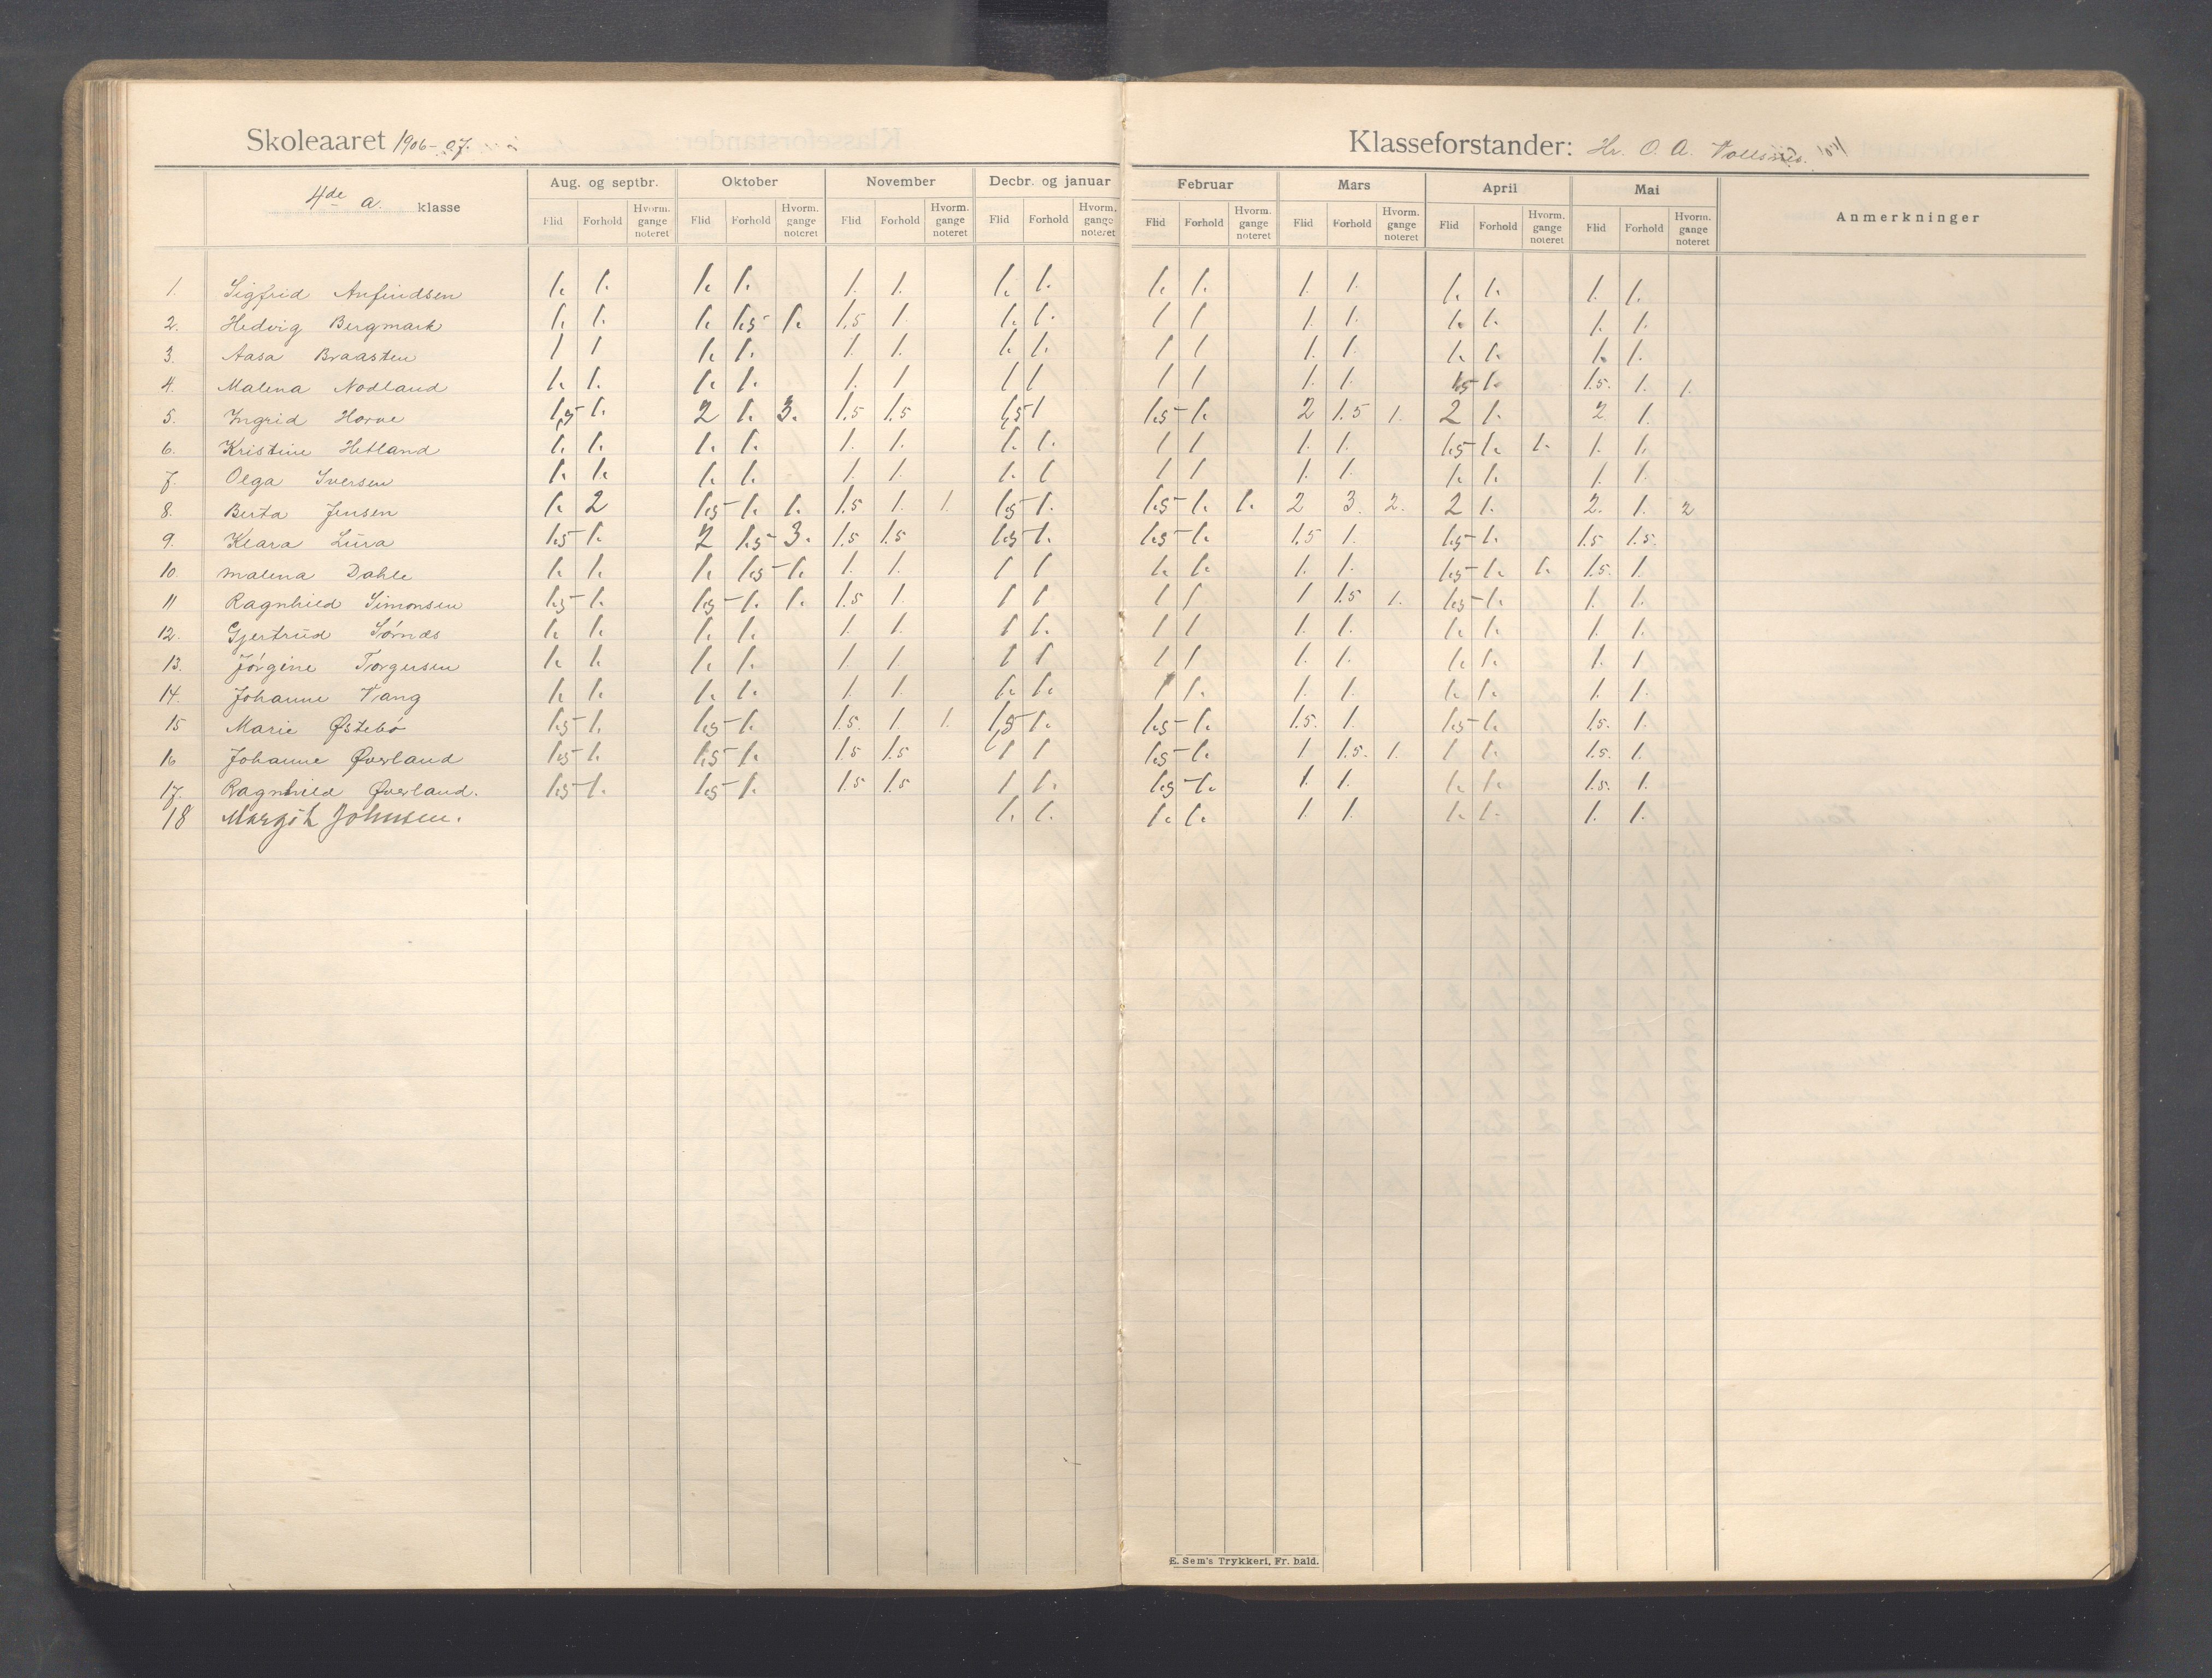 Skoleaaret 1906-07. Klasseforstander: Hr. O. A.
4de a. klasse Aug. og septbr. Oktober November Decbr. og januar Februar Mars April Mai Anmerkninger
Flid Forhold Hvorm. gange noteret Flid Forhold Hvorm. gange noteret Flid Forhold Hvorm. gange noteret Flid Forhold Hvorm. gange noteret Flid Forhold Hvorm. gange noteret Flid Forhold Hvorm. gange noteret Flid Forhold Hvorm. gange noteret Flid Forhold Hvorm. gange noteret
1. Sigfrid Anfindsen 1. 1. 1. 1. 1. 1. 1. 1. 1. 1. 1. 1. 1. 1. 1. 1.
2. Hedvig Bergmark 1. 1. 1. 1.5 1. 1.5 1. 1. 1. 1 1 1. 1. 1. 1. 1. 1.
3. Aasa Braasten 1 1 1. 1. 1. 1. 1. 1. 1 1 1. 1. 1. 1. 1. 1.
4. Malena Nodland 1. 1. 1. 1. 1. 1 1 1 1 1 1. 1. 1.5 1. 1.5. 1. 1.
5. Ingrid Horve 1.5 1. 2 1. 3. 1.5 1.5 1.5 1 1.5 1. 2 1.5 1. 2 1. 2 1.
6. Kristine Hetland 1. 1. 1. 1. 1. 1. 1. 1. 1 1 1. 1. 1.5 1. 1. 1. 1.
7. Olga Iversen 1. 1. 1. 1. 1. 1. 1. 1 1 1 1. 1. 1. 1. 1. 1.
8. Berta Jensen 1. 2 1.5 1. 1. 1.5 1. 1. 1.5 1. 1.5 1. 1. 2 3. 2. 2 1. 2. 1. 2
9. Klara Lura 1.5 1. 2 1.5 3. 1.5 1.5 1.5 1. 1.5 1. 1.5 1. 1.5 1. 1.5 1.5.
10. Malena Dahle 1. 1. 1. 1.5 1. 1. 1. 1 1 1. 1. 1. 1. 1.5 1. 1. 1.5. 1.
11 Ragnhild Simonsen 1.5 1. 1.5 1. 1. 1.5 1. 1 1 1 1 1 1.5 1. 1.5 1. 1. 1.
12. Gjertrud Sørnæs 1. 1. 1. 1. 1. 1. 1 1. 1 1 1. 1. 1. 1. 1. 1.
13. Jørgine Torgersen 1. 1. 1. 1. 1. 1 1 1 1 1 1. 1. 1. 1. 1. 1
14. Johanne Vang 1. 1. 1. 1. 1. 1. 1. 1. 1 1. 1. 1. 1. 1. 1. 1.
15 Marie Østebø 1.5 1. 1.5 1. 1.5. 1. 1. 1.5 1. 1.5 1. 1.5. 1. 1.5 1. 1.5. 1.
16 Johanne Øverland 1.5 1. 1.5 1. 1.5 1.5 1 1 1.5 1. 1 1.5. 1. 1 1. 1.5. 1.
17. Ragnhild Øverland. 1.5 1. 1.5 1. 1.5 1.5 1 1. 1.5 1. 1. 1. 1. 1. 1.5. 1.
18 Margit Johnsen. 1. 1. 1. 1. 1. 1. 1. 1. 1. 1.
E. Sem's Trykkeri, Fr. hald.